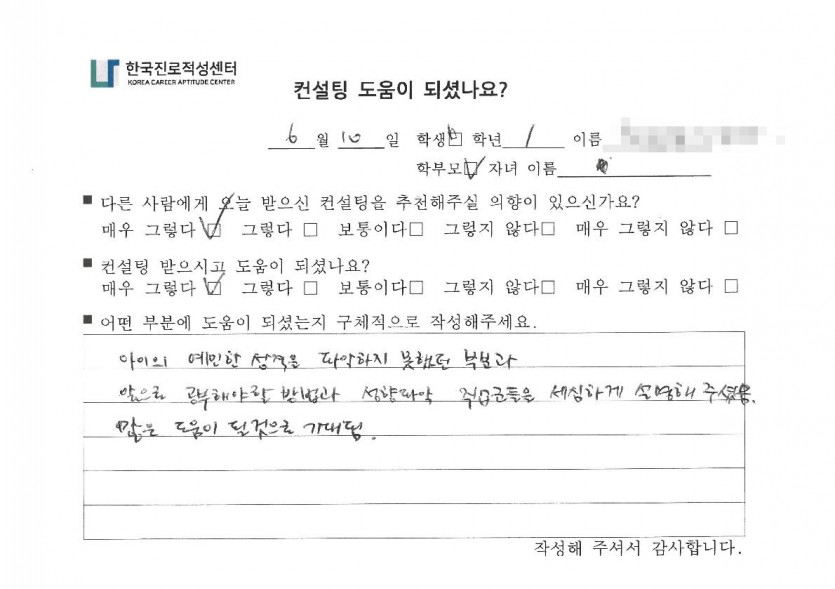 한국진로적성센터
KOREA CAREER APTITUDE CENTER
컨설팅 도움이 되셨나요?
6 월 10 일 학생☐ 학년 1 이름
학부모☑ 자녀 이름
■ 다른 사람에게 오늘 받으신 컨설팅을 추천해주실 의향이 있으신가요?
매우 그렇다 ☑ 그렇다 ☐ 보통이다☐ 그렇지 않다☐ 매우 그렇지 않다 ☐
■ 컨설팅 받으시고 도움이 되셨나요?
매우 그렇다 ☑ 그렇다 ☐ 보통이다☐ 그렇지 않다☐ 매우 그렇지 않다 ☐
■ 어떤 부분에 도움이 되셨는지 구체적으로 작성해주세요.
아이의 예민한 성격을 파악하지 못했던 부분과
앞으로 공부해야할 방법과 성향파악 직업군들을 세심하게 설명해 주셨음.
많은 도움이 될것으로 기대됨.
작성해 주셔서 감사합니다.